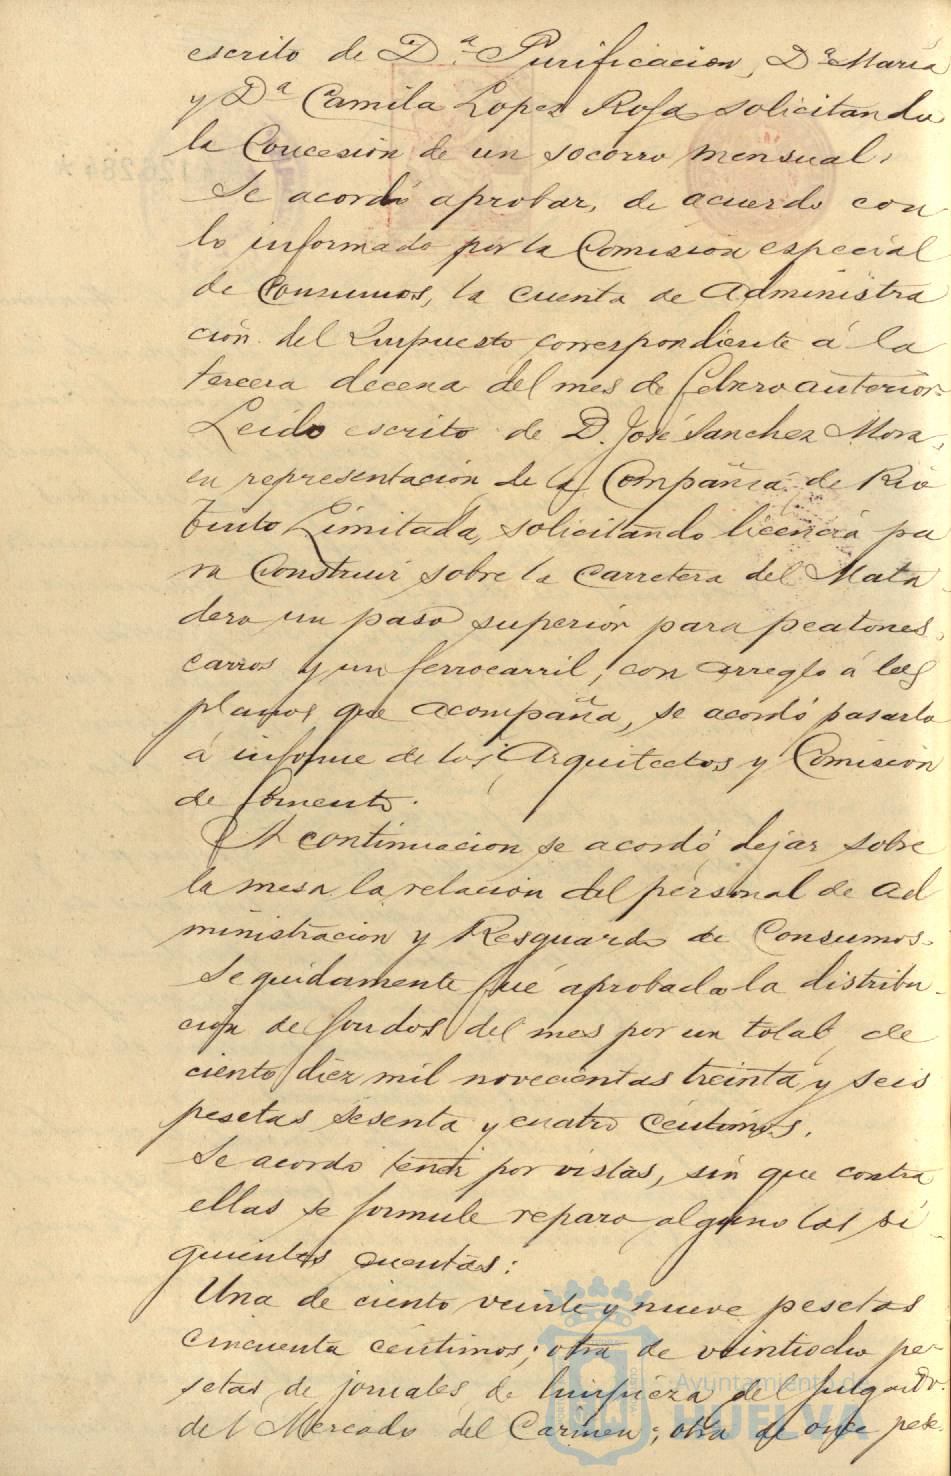 escrito de D.ª Purificacion, D.ª Maria
y D.ª Camila Lopez Rosa solicitando
la Concesión de un socorro mensual.
Se acordó aprobar, de acuerdo con
lo informado por la Comisión especial
de Consumos, la cuenta de Administra
ción del Impuesto correspondiente á la
tercera decena del mes de febrero anterior.
Leido escrito de D. José Sanchez Mora,
en representación de la Compañia de Rio
tinto Limitada, solicitando licencia pa
ra Construir sobre la Carretera del Mata
dero un paso superior para peatones,
carros y un ferrocarril, con arreglo á los
planos que acompaña, se acordó pasarlo
á informe de los Arquitectos y Comisión
de fomento.
A continuacion se acordó dejar sobre
la mesa la relación del personal de Ad
ministración y Resguardo de Consumos.
Seguidamente fué aprobada la distribu
ción de fondos del mes por un total de
ciento diez mil novecientas treinta y seis
pesetas sesenta y cuatro céntimos.
Se acordó tener por vistas, sin que contra
ellas se formule reparo alguno las si
guientes cuentas:
Una de ciento veinte y nueve pesetas
cincuenta céntimos; otra de veintiocho pe-
setas de jornales de limpieza del Juzgado
del Mercado del Carmen; otra de once pese-
Ayuntamiento de
HUELVA